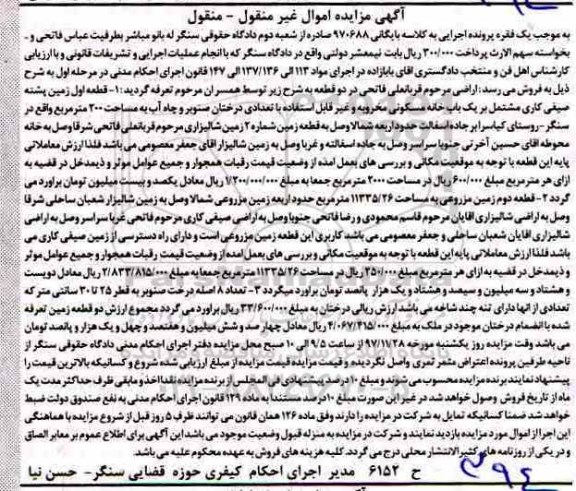 آگهی مزایده اموال غیر منقول - منقول
به موجب یک فقره پرونده اجرایی به کلاسه بایگانی ۹۷۰۶۸۸ صادره از شعبه دوم دادگاه حقوقی سنگر له بانو مباشر بطرفیت عباس فاتحی و -
بخواسته سهم الارث پرداخت ۳۰۰/۰۰۰ ریال بابت نیمعشر دولتی واقع در دادگاه سنگر که با انجام عملیات اجرایی و تشریفات قانونی و با ارزیابی
کارشناس اهل فن و منتخب دادگستری آقای بابازاده در اجرای مواد ۱۱۳ الی ۱۳۷/۱۳۶ الی ۱۴۷ قانون اجرای احکام مدنی در مرحله اول به شرح
ذیل به فروش می رسد: اراضی مرحوم قربانعلی فاتحی در دو قطعه به شرح زیر توسط همسر ان مرحوم تعرفه گردید: ۱- قطعه اول زمین پشته
صیفی کاری مشتمل بر یک باب خانه مسکونی مخروبه و غیر قابل استفاده با تعدادی درختان صنوبر و چاه آب به مساحت ۲۰۰۰ مترمربع واقع در
سنگر - روستای کیاسرا بر جاده اسفالت حدود اربعه شمالا وصل به قطعه زمین شماره ۲ زمین شالیزاری مرحوم قربانعلی فاتحی شرقا وصل به خانه
محوطه اقای حسین آخرتی جنوبا سراسر وصل به جاده اسفالته و غربا وصل به زمین شالیزار اقای جعفر معصومی می باشد فلذا ارزش معاملاتی
پایه این قطعه با توجه به موقعیت مکانی و بررسی های بعمل امده از وضعیت قیمت رقبات همجوار و جمیع عوامل موثر و ذیمدخل در قضیه به
ازای هر مترمربع مبلغ ۶۰۰/۰۰۰ ریال در مساحت ۲۰۰۰ مترمربع جمعا به مبلغ ۱/۲۰۰/۰۰۰/۰۰۰ ریال معادل یکصد و بیست میلیون تومان براورد می
گردد ۲- قطعه دوم زمین مزروعی به مساحت ۱۱۳۳۵/۲۶ مترمربع حدود اربعه زمین مزروعی شمالا وصل به زمین شالیزار شعبان ساحلی شرقا
وصل به اراضی شالیزاری اقایان مرحوم قاسم محمودی و رضا فاتحی جنوبا وصل به اراضی صیفی کاری مرحوم فاتحی غربا سراسر وصل به اراضی
شالیزاری اقایان شعبان ساحلی و جعفر معصومی می باشد کاربری این قطعه زمین مزروعی است و دارای راه دسترسی از زمین صیفی کاری می
باشد فلذا ارزش معاملاتی پایه این قطعه با توجه به موقعیت مکانی و بررسی های بعمل امده از وضعیت قیمت رقبات همجوار و جمیع عوامل موثر
و ذیمدخل در قضیه به ازای هر مترمربع مبلغ ۲۵۰/۰۰۰ ریال در مساحت ۱۱۳۳۵/۲۶ مترمربع جمعا به مبلغ ۲/۸۳۳/۸۱۵/۰۰۰ ریال معادل دویست
و هشتاد و سه میلیون و سیصد و هشتاد و یک هزار پانصد تومان براورد میگردد ۳- تعداد ۸ اصله درخت صنوبر به قطر ۲۵ تا ۳۰ سانتی متر که
تعدادی از انها دارای تنه چند شاخه می باشد ارزش ریالی درختان به مبلغ ۳۳/۶۰۰/۰۰۰ ریال براورد می گردد. مجموع ارزش دو قطعه زمین تعرفه
شده با انضمام درختان موجود در ملک به مبلغ ۴/۰۶۷/۴۱۵/۰۰۰ ریال معادل چهار صد و شش میلیون و هفتصد و چهل و یک هزار و پانصد تومان
می باشد وقت مزایده روز یکشنبه مورخه ۹۷/۱۱/۲۸ از ساعت ۹/۵ الی ۱۰ صبح محل مزایده دفتر اجرای احکام مدنی دادگاه حقوقی سنگر از
ناحیه طرفین پرونده اعتراض مثمر ثمری واصل نگردیده و قیمت مزایده قیمت مزایده از مبلغ ارزیابی شده شروع و کسانیکه بالاترین قیمت را
پیشنهاد نمایند برنده مزایده محسوب می شوند و مبلغ ۱۰ درصد پیشنهادی فی المجلس از برنده مزایده اخذ و مابقی ظرف حداکثر مدت یک
ماه از تاریخ فروش وصول خواهد شد در غیر این صورت مبلغ ۱۰ درصد مستندا به ماده ۱۲۹ قانون اجرای احکام مدنی به نفع صندوق دولت ضبط
خواهد شد ضمنا کسانیکه تمایل به شرکت در مزایده را دارند وفق ماده ۱۲۶ همان قانون می توانند ظرف ۵ روز قبل از شروع مزایده با هماهنگی
این اجرا از اموال مورد مزایده بازدید نمایند و شرکت در مزایده به منزله قبول وضعیت موجود می باشد این آگهی برای اطلاع عموم بر معابر الصاق
و در یکی از روزنامه های کثیرالانتشار محلی درج می گردد. کلیه هزینه های فروش به عهده محکوم علیه می باشد.
ح ۶۱۵۲ مدیر اجرای احکام کیفری حوزه قضایی سنگر - حسن نیا